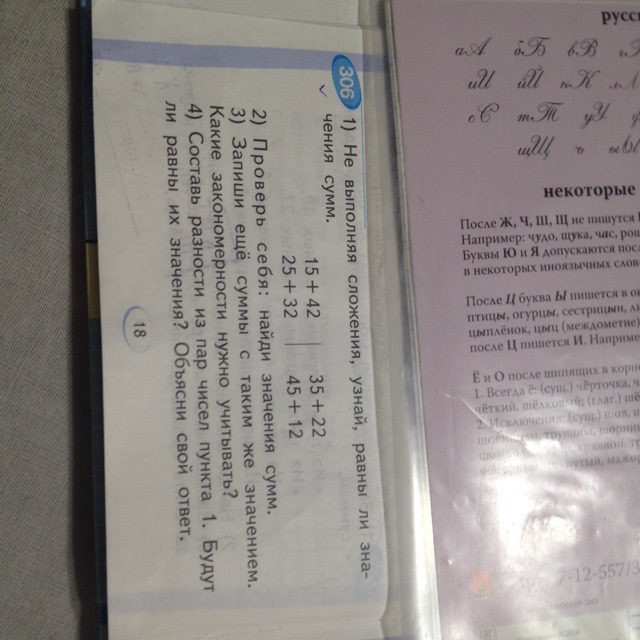 306
1) Не выполняя сложения, узнай, равны ли зна-
чения сумм.
15 + 42 | 35 + 22
25 + 32 | 45 + 12
2) Проверь себя: найди значения сумм.
3) Запиши ещё суммы с таким же значением.
Какие закономерности нужно учитывать?
4) Составь разности из пар чисел пункта 1. Будут
ли равны их значения? Объясни свой ответ.
18
русс
аА бБ вВ
иИ йЙ кК лЛ
сС тТ уУ
щЩ ъ
некоторые
После Ж, Ч, Ш, Щ не пишутся
Например: чудо, щука, час,
Буквы Ю и Я допускаются
в некоторых иноязычных
После Ц буква Ы пишется в
птицы, огурцы, сестрицын,
цыплёнок, цыц (междометие)
после Ц пишется И.
Ё и О после шипящих в
1. Всегда ё: (сущ.) чёрточка,
чёткий, шёлковый; (глаг.)
2. Исключения: (сущ.) шов,
7-12-557/3